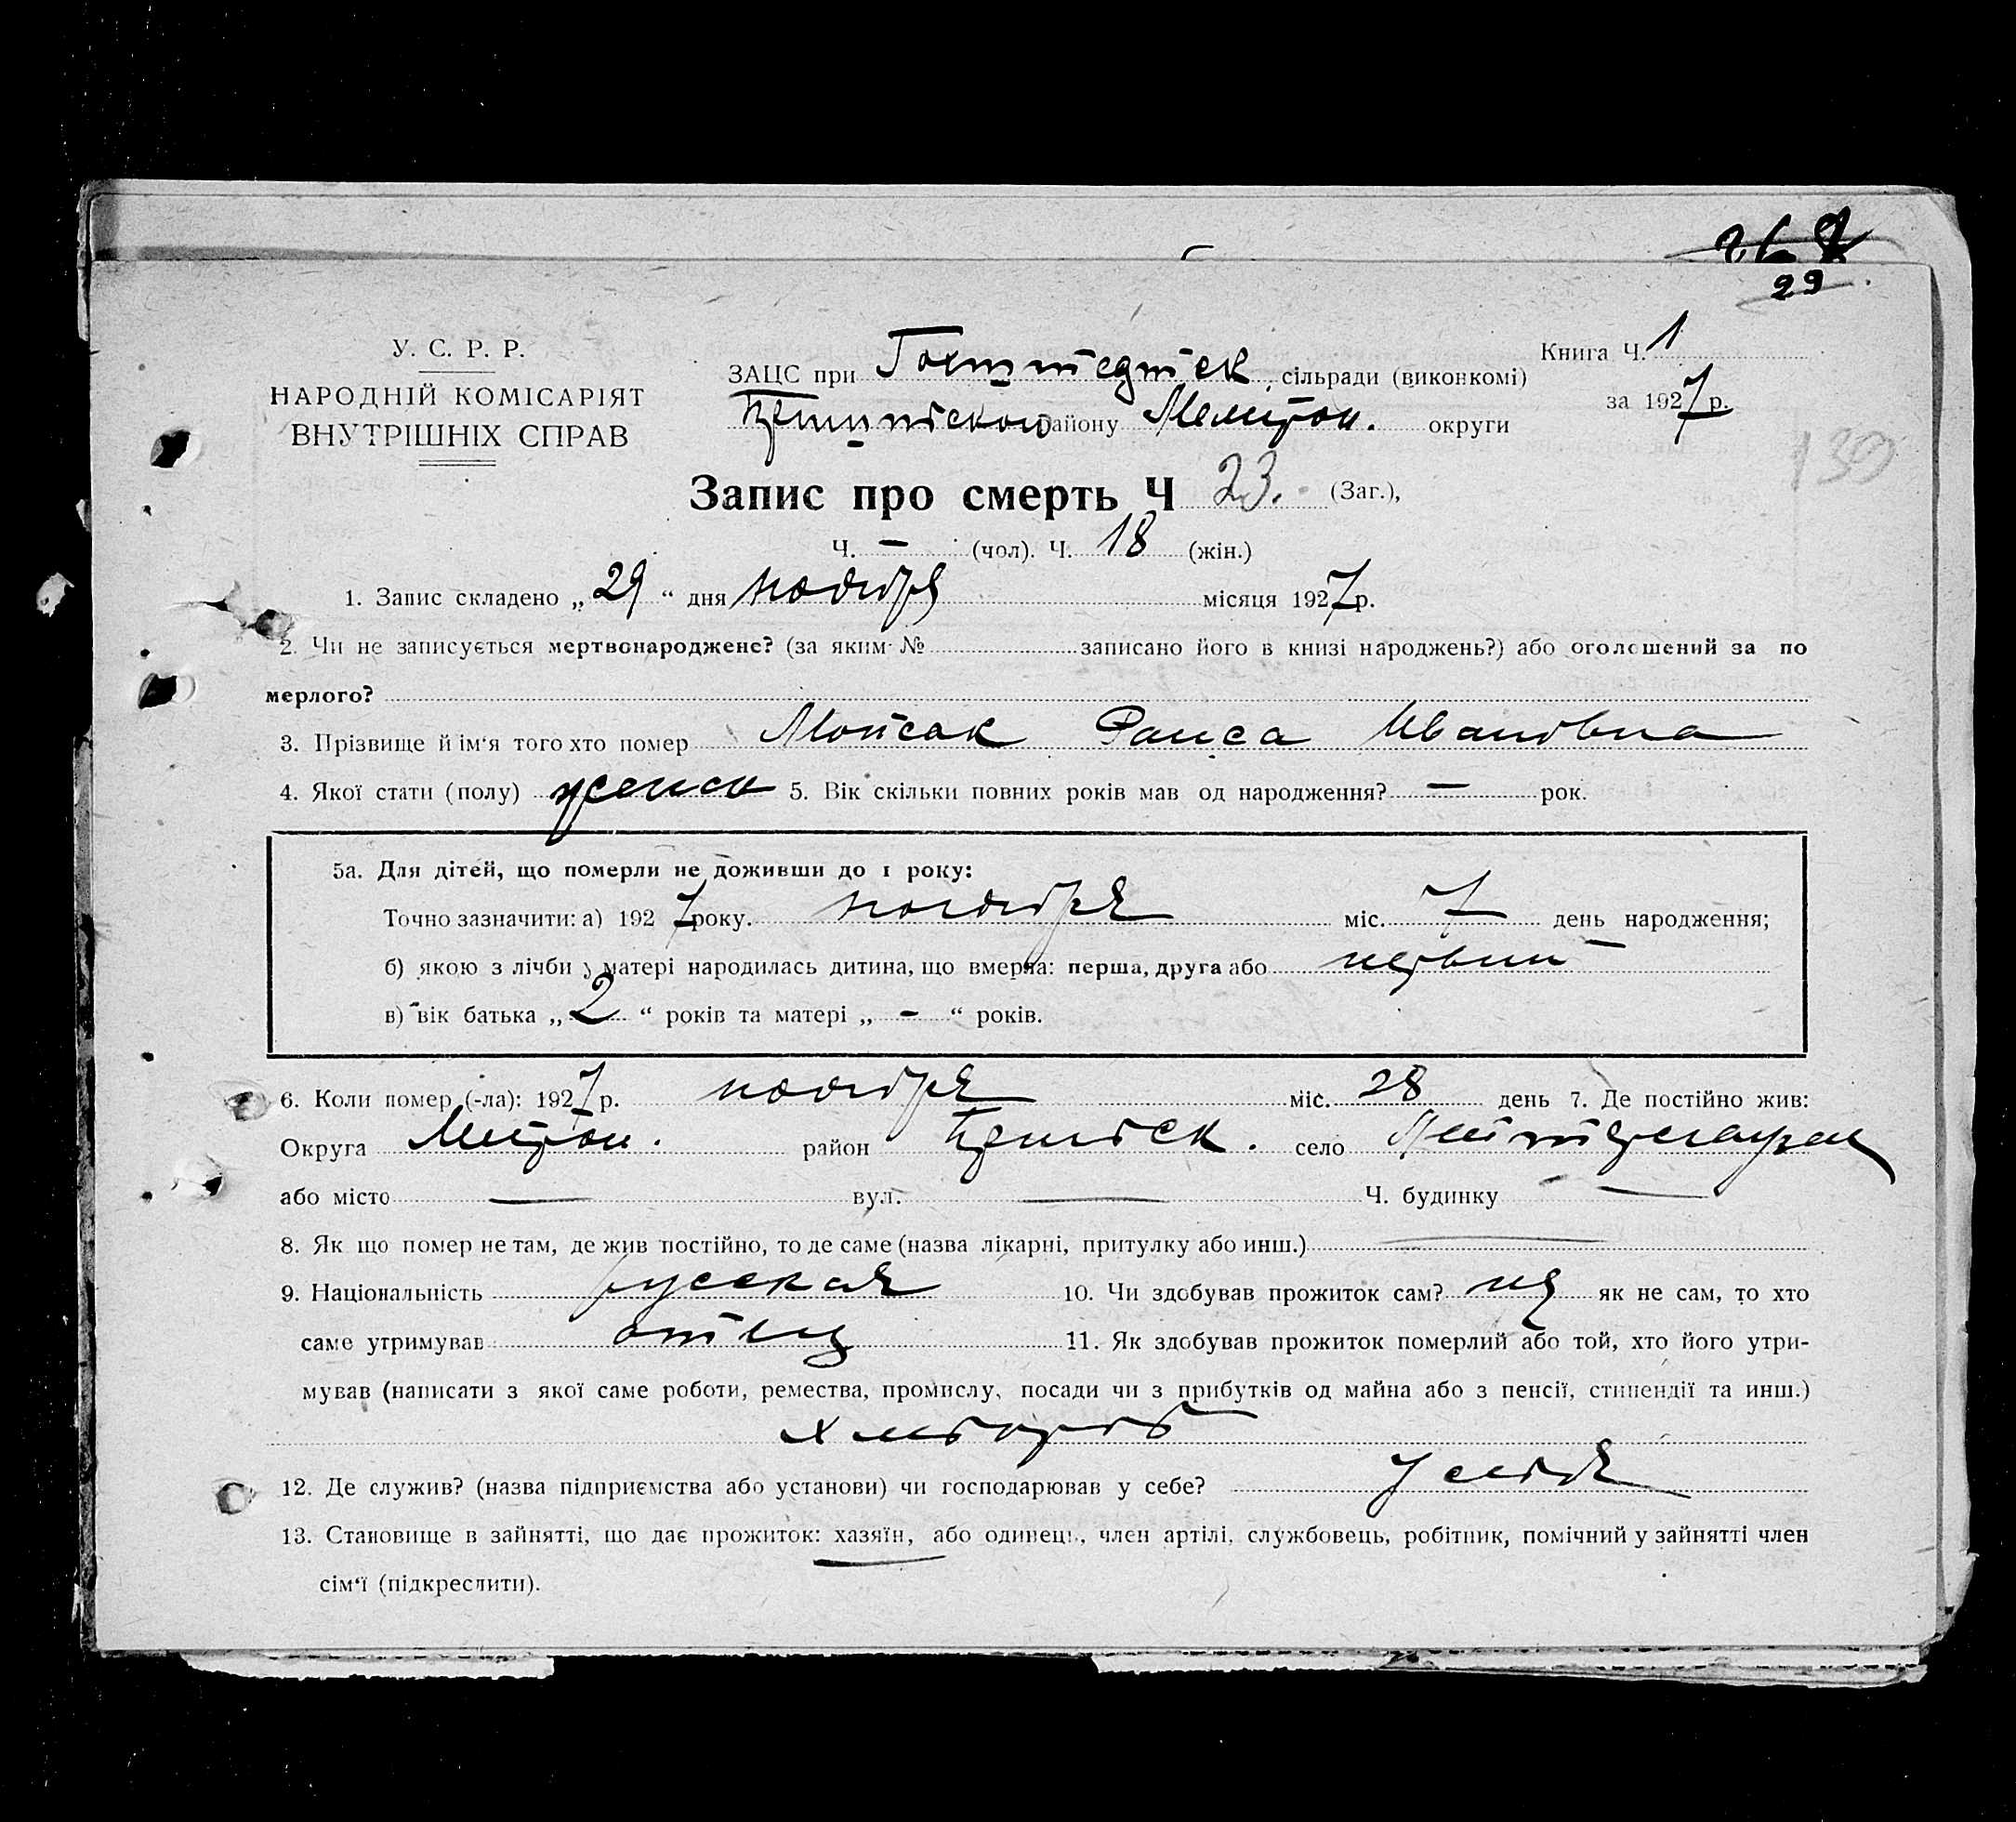 29
У. С. Р. Р.
НАРОДНІЙ КОМІСАРІЯТ
ВНУТРІШНІХ СПРАВ
ЗАЦС при Гохштедтск. сільради (виконкомі)
району Мелитоп. округи
Книга Ч. 1
за 1927 р.
139
Запис про смерть Ч 23. (Заг.),
Ч. — (чол). Ч. 18 (жін.)
1. Запис складено „29“ дня ноября місяця 1927 р.
2. Чи не записується мертвонароджене? (за яким № записано його в книзі народжень?) або оголошений за по
мерлого?
3. Прізвище й ім‘я того хто помер Мойсак Раиса Ивановна
4. Якої стати (полу) женск 5. Вік скільки повних років мав од народження? — рок.
5а. Для дітей, що померли не доживши до 1 року:
Точно зазначити: а) 1927 року. ноября міс. 7 день народження;
б) якою з лічби у матері народилась дитина, що вмерла: перша, друга або первый
в) вік батька „2“ років та матері „-“ років.
6. Коли помер (-ла): 1927 р. ноября міс. 28 день 7. Де постійно жив:
Округа район село
або місто — вул. — Ч. будинку —
8. Як що помер не там, де жив постійно, то де саме (назва лікарні, притулку або инш.) —
9. Національність русская 10. Чи здобував прожиток сам? не як не сам, то хто
саме утримував отец 11. Як здобував прожиток померлий або той, хто його утри-
мував (написати з якої саме роботи, ремества, промислу, посади чи з прибутків од майна або з пенсії, стипендії та инш.)
хлебороб
12. Де служив? (назва підприємства або установи) чи господарював у себе? у себя
13. Становище в зайнятті, що дає прожиток: хазяїн, або одинець, член артілі, службовець, робітник, помічний у зайнятті член
сім‘ї (підкреслити).